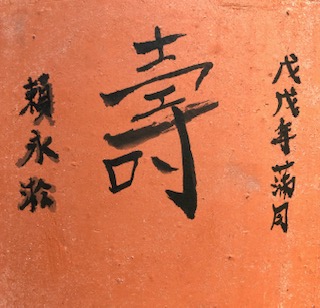 戊戌年蒲月
壽
賴永松